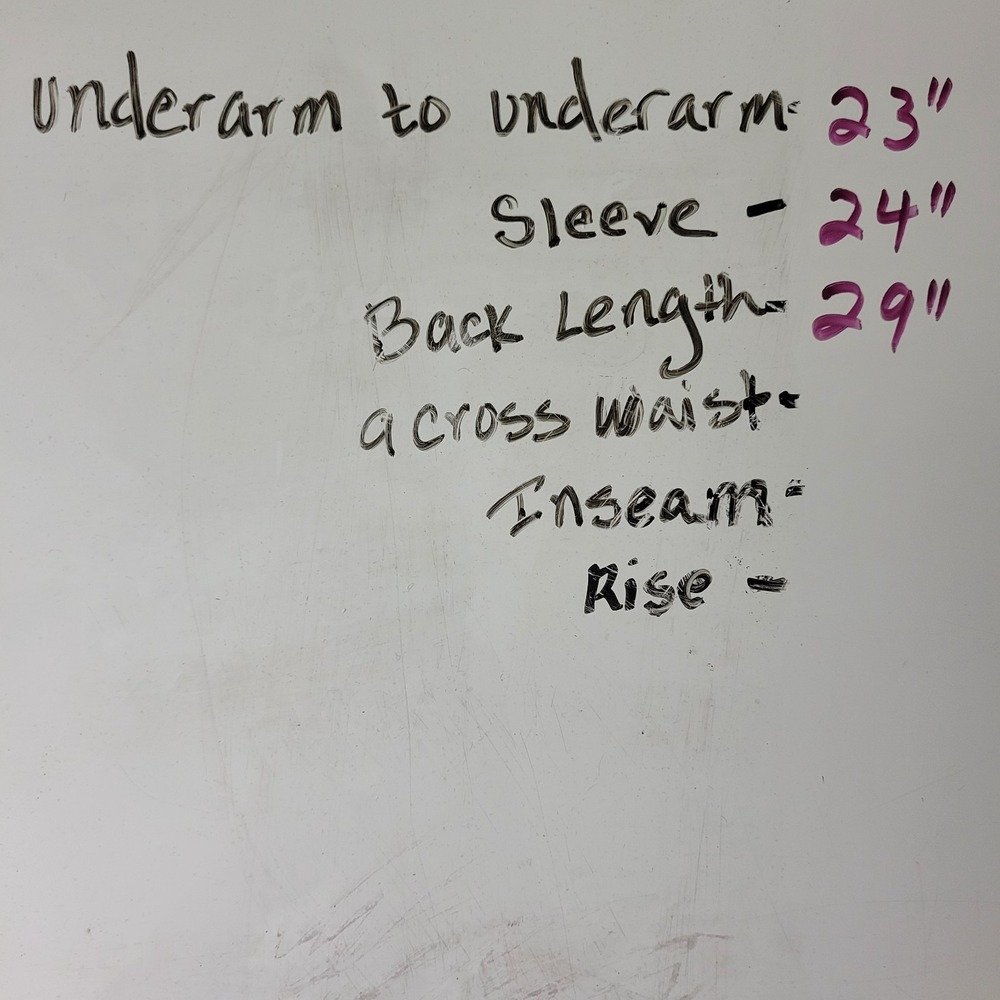 underarm to underarm- 23"
Sleeve - 24"
Back Length- 29"
across waist-
Inseam-
Rise -